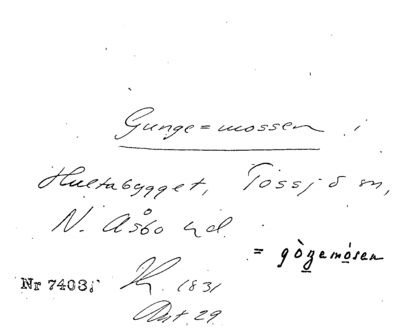 Gunge=mossen i
Hultabygget, Tossjö sn,
N. Åsbo hd.
= gòŋemósen
Nr 7403; K. 1831
Akt 29